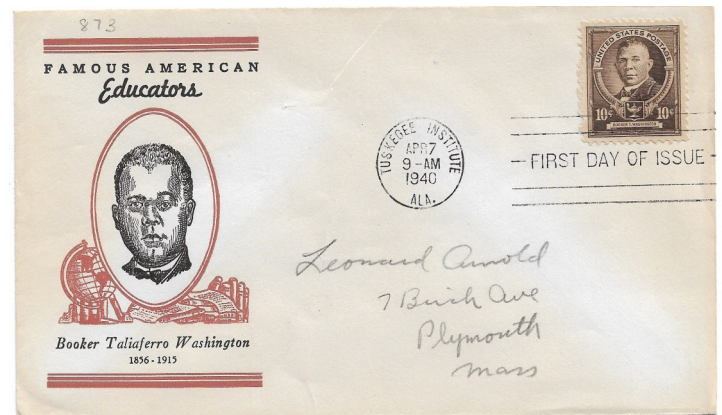 873
FAMOUS AMERICAN
Educators
Booker Taliaferro Washington
1856 - 1915
TUSKEGEE INSTITUTE
APR 7
9 - AM
1940
ALA.
UNITED STATES POSTAGE
10¢ 10¢
BOOKER T. WASHINGTON
FIRST DAY OF ISSUE
Leonard Arnold
7 Birch Ave
Plymouth
Mass